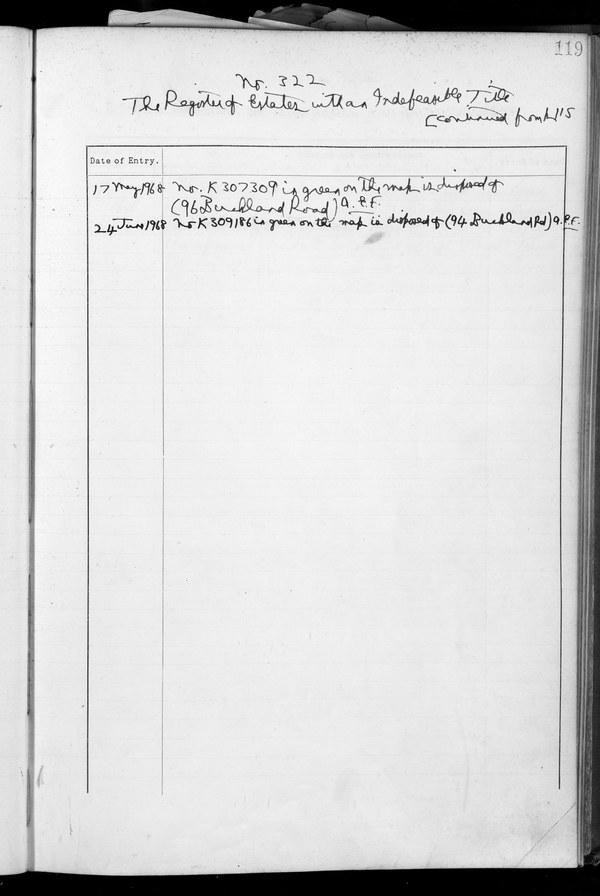 119
No. 322
The Register of Estates with an Indefeasible Title
[continued from f 115
Date of Entry.
17 May 1968 No. K 307309 in green on the map is disposed of
(96 Buckland Road) A.P.F.
24 June 1968 No K 309186 in green on the map is disposed of (94 Buckland Rd) A.P.F.